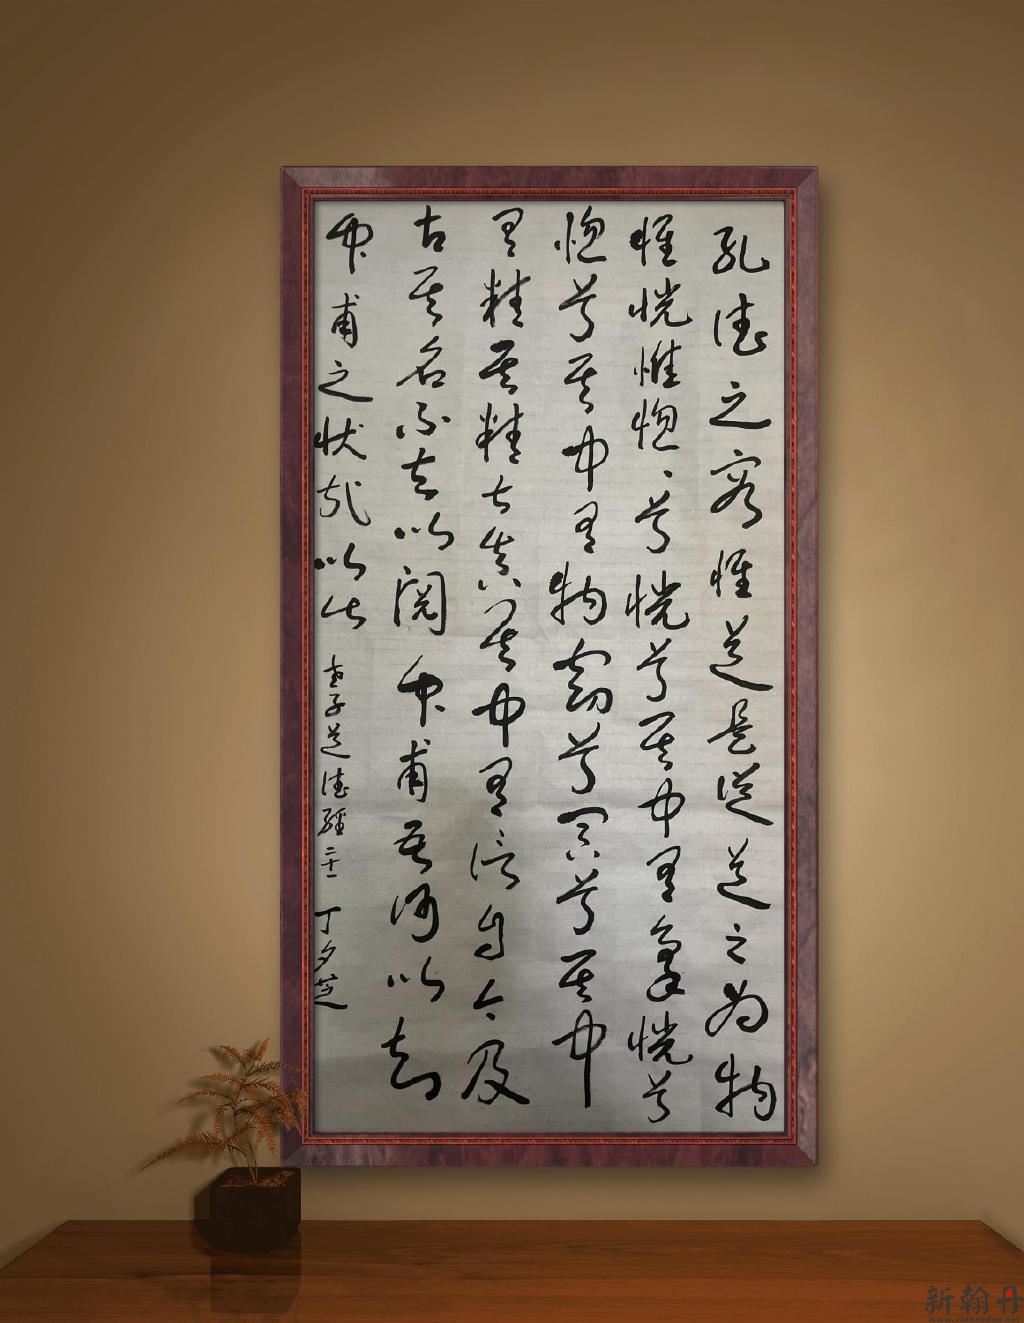 孔德之容惟道是从道之为物
惟恍惟惚、兮恍兮其中有象恍兮
惚兮其中有物窈兮冥兮其中
有精其精甚真其中有信自今及
古其名不去以閱众甫吾何以知
众甫之状哉以此 老子道德經二十一 丁夕芝
新翰丹